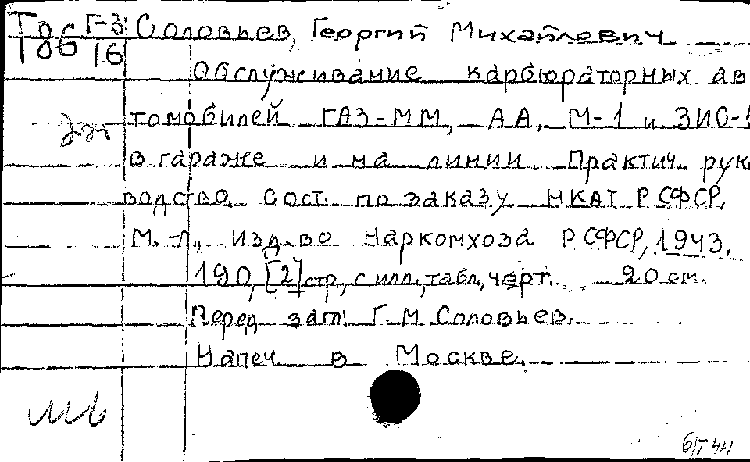 Г-3 Соловьев, Георгий Михайлович
16
Обслуживание карбюраторных ав
томобилей ГАЗ-ММ, АА, М-1 и ЗИС-5
в гараже и на линии. Практич. рук
водство. Сост. по заказу НКАТ РСФСР.
М.-Л., Изд-во Наркомхоза РСФСР, 1943.
190, [2] стр., с илл., табл., черт. 20 см.
Перед загл: Г. М. Соловьев.
Напеч. в Москве.